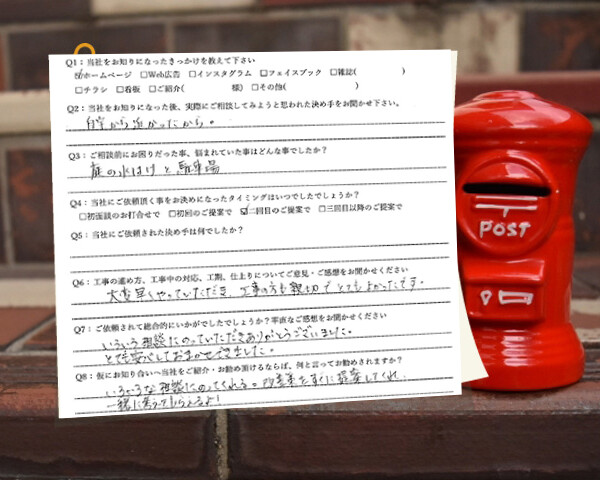 Q1：当社をお知りになったきっかけを教えて下さい
☑ホームページ □Web広告 □インスタグラム □フェイスブック □雑誌( )
□チラシ □看板 □ご紹介( 様) □その他( )
Q2：当社をお知りになった後、実際にご相談してみようと思われた決め手をお聞かせ下さい。
自宅から近かったから。
Q3：ご相談前にお困りだった事、悩まれていた事はどんな事でしたか？
庭の水はけと駐車場
Q4：当社にご依頼頂く事をお決めになったタイミングはいつでしたでしょうか？
□初面談のお打合せで □初回のご提案で ☑二回目のご提案で □三回目以降のご提案で
Q5：当社にご依頼された決め手は何でしたか？
Q6：工事の進め方、工事中の対応、工期、仕上りについてご意見・ご感想をお聞かせください
大変早くやっていただき、工事の方も親切でとてもよかったです。
Q7：ご依頼されて総合的にいかがでしたでしょうか？率直なご感想をお聞かせください
いろいろ相談にのっていただきありがとうございました。
とても安心しておまかせできました。
Q8：仮にお知り合いへ当社をご紹介・お勧め頂けるならば、何と言ってお勧めされますか？
いろいろな相談にのってくれる。改善案をすぐに提案してくれ
一緒に考えてもらえるよ！
POST